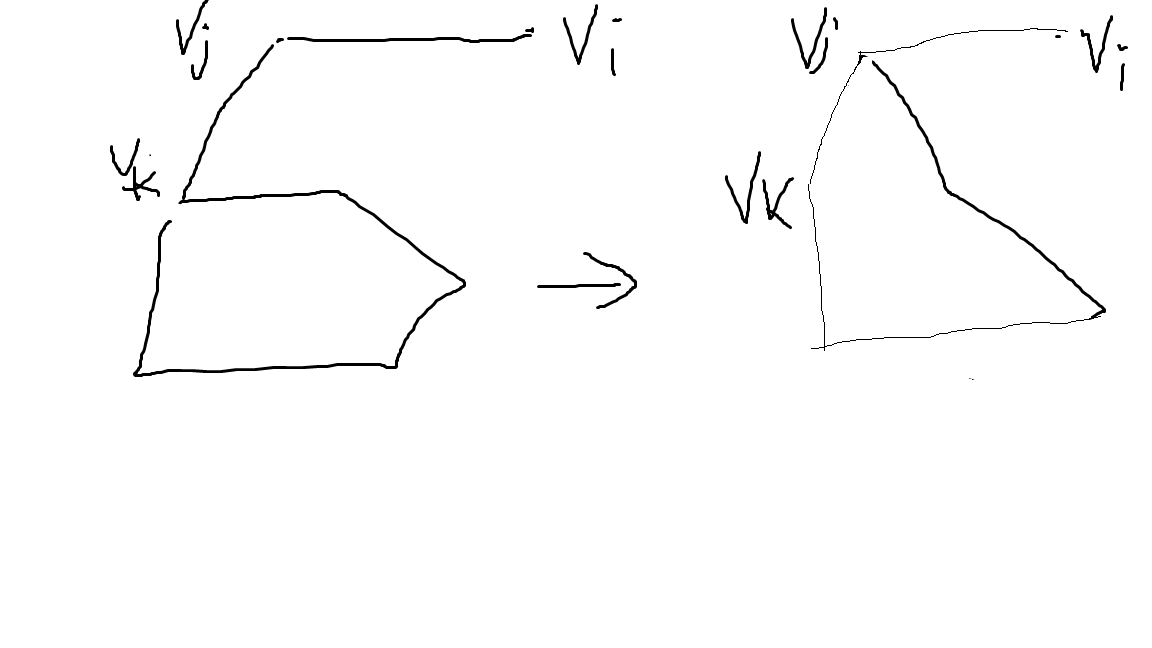 Vj Vi
Vk
Vj Vi
VK